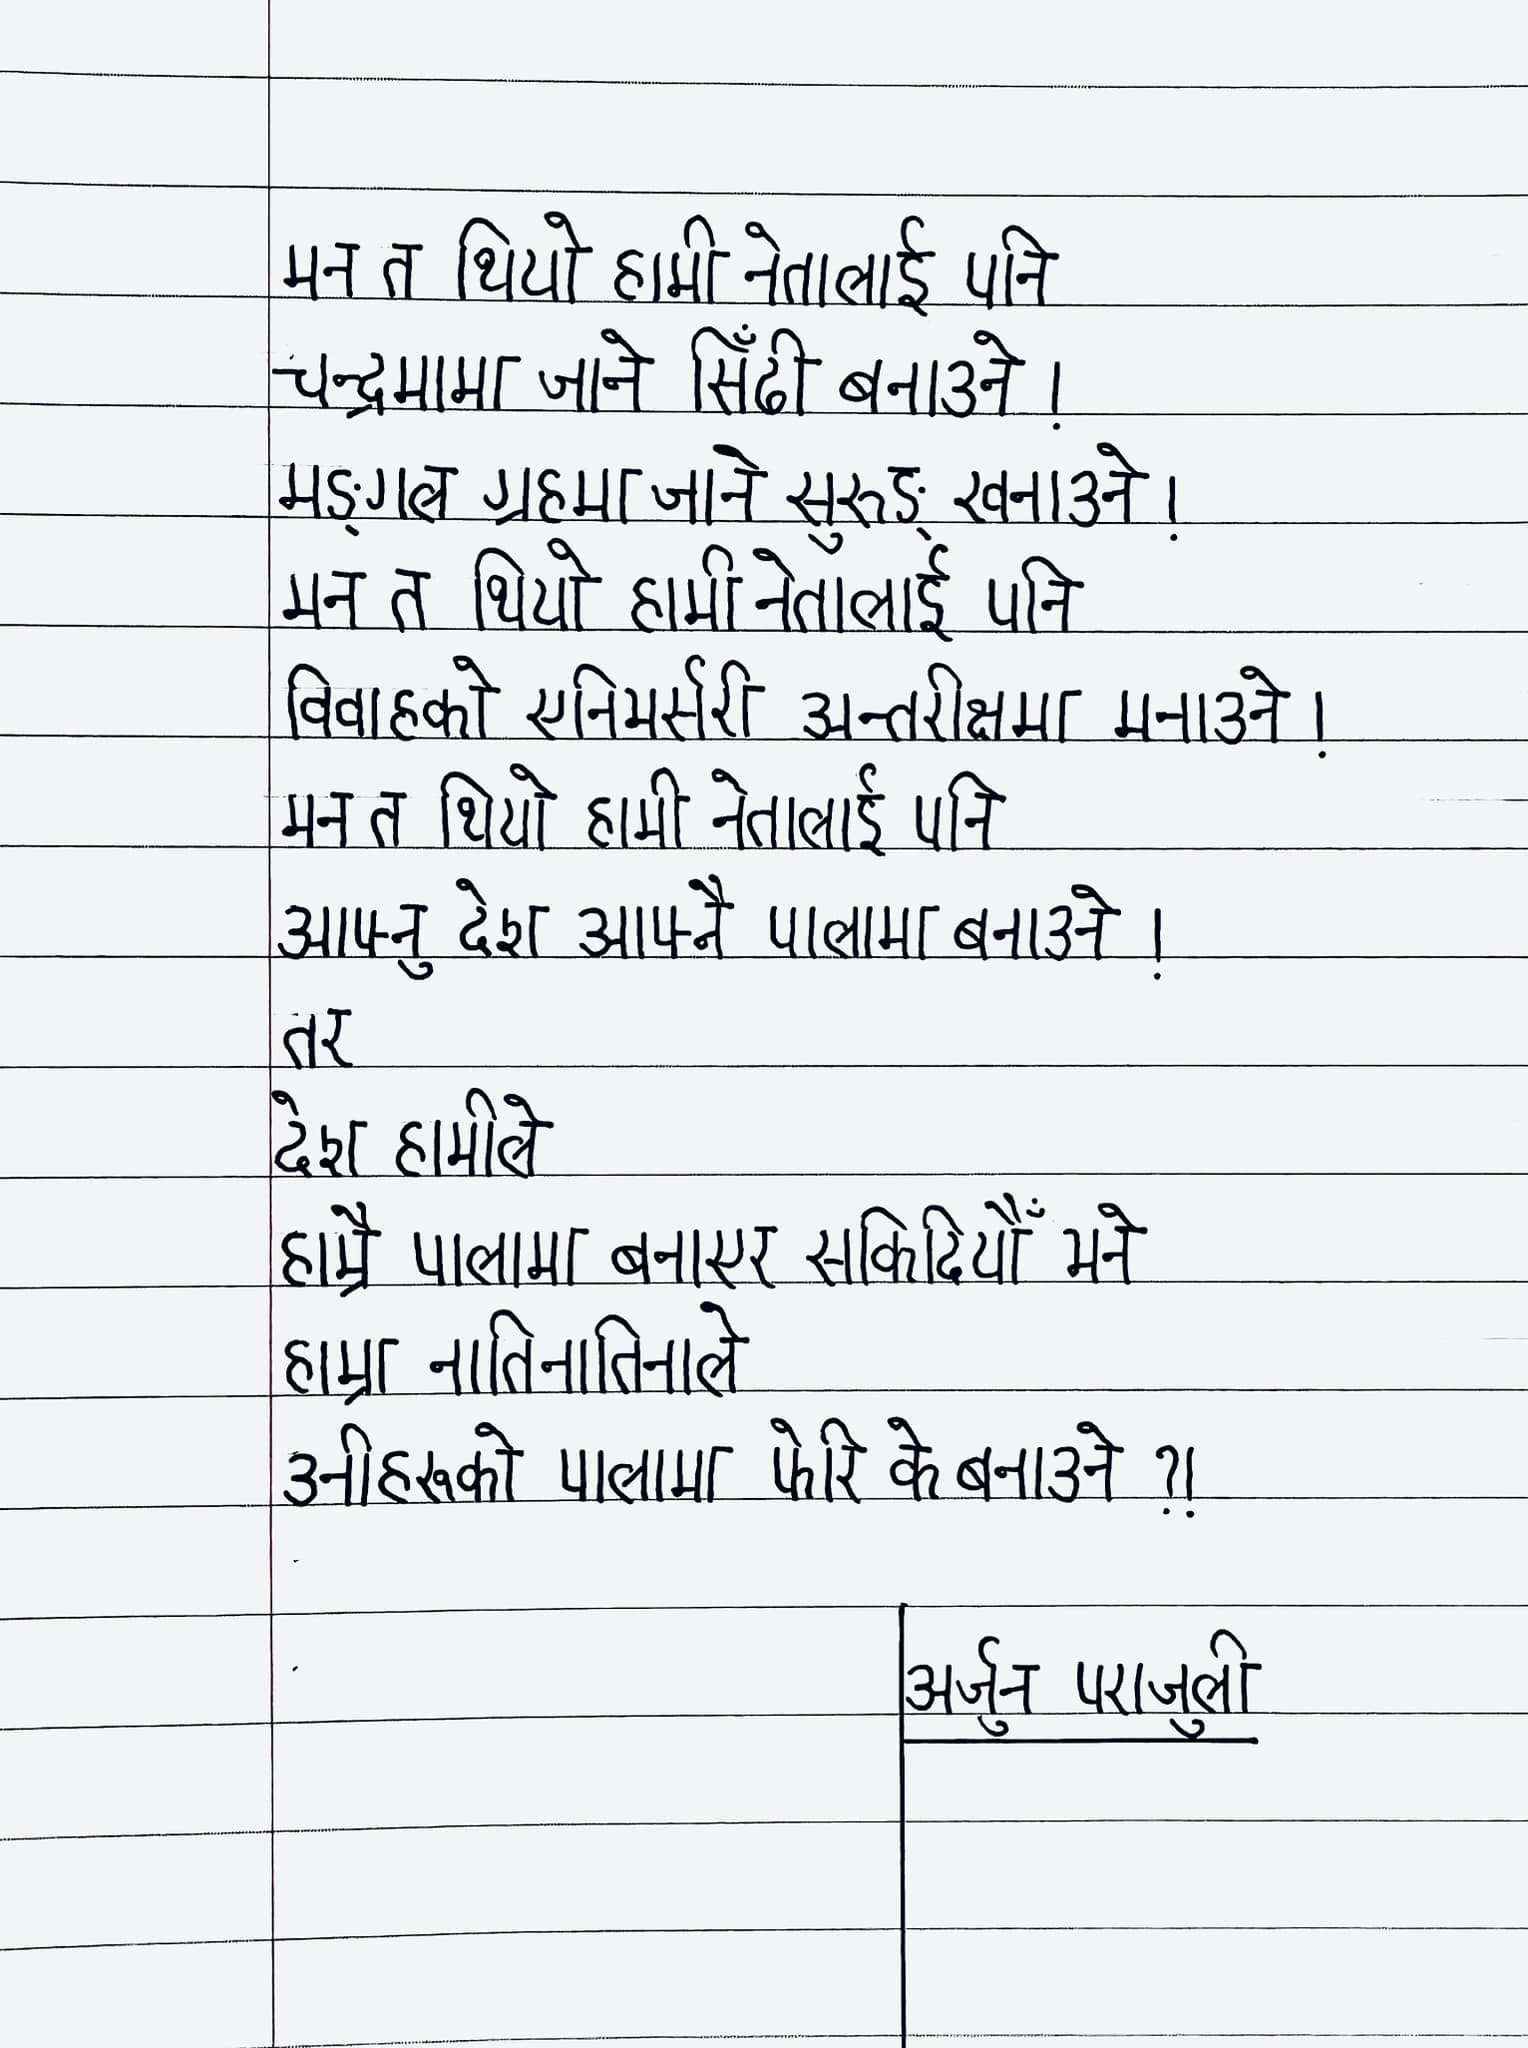 मन त थियो हामी नेतालाई पनि
चन्द्रमामा जाने सिँढी बनाउने !
मङ्गल ग्रहमा जाने सुरुङ् खनाउने !
मन त थियो हामी नेतालाई पनि
विवाहको एनिभर्सरी अन्तरीक्षमा मनाउने !
मन त थियो हामी नेतालाई पनि
आफ्नु देश आफ्नै पालामा बनाउने !
तर
देश हामीले
हाम्रै पालामा बनाएर सकिदियौँ भने
हाम्रा नातिनातिनाले
उनीहरूको पालामा फेरि के बनाउने ?!
अर्जुन पराजुली